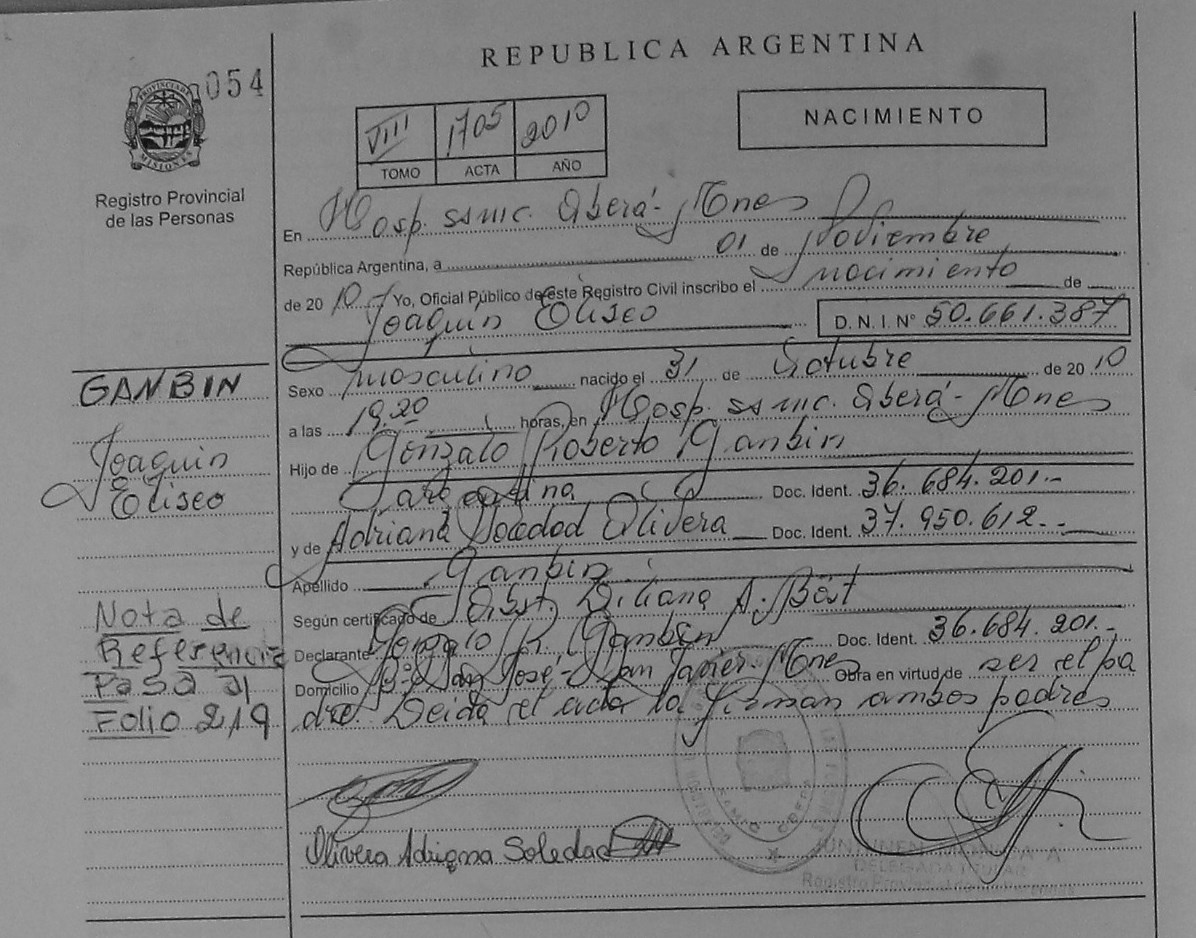 REPUBLICA ARGENTINA
054
PROVINCIA DE MISIONES
Registro Provincial
de las Personas
VIII 1705 2010
TOMO ACTA AÑO
NACIMIENTO
En Hosp. SAMIC. Oberá - Mnes
República Argentina, a 01 de Noviembre
de 2010 Yo, Oficial Público de este Registro Civil inscribo el nacimiento de
Joaquín Eliseo D. N. I. N° 50.661.387
Sexo masculino nacido el 31 de Octubre de 2010
a las 19.20 horas, en Hosp. SAMIC. Oberá - Mnes
Hijo de Gonzalo Roberto Ganbin
argentino Doc. Ident. 36.684.201.-
y de Adriana Soledad Olivera Doc. Ident. 37.950.612.-
Apellido Ganbin
Según certificado de Obst. Liliana A. Böst
Declarante Gonzalo R. Ganbin Doc. Ident. 36.684.201.-
Domicilio Bº San José - San Javier - Mnes Obra en virtud de ser el pa
dre. Leida el acta la firman ambos padres
GANBIN
Joaquín
Eliseo
Nota de
Referencia
Pasa al
Folio 219
Olivera Adriana Soledad
DELEGADA TITULAR
Registro Provincial de las Personas